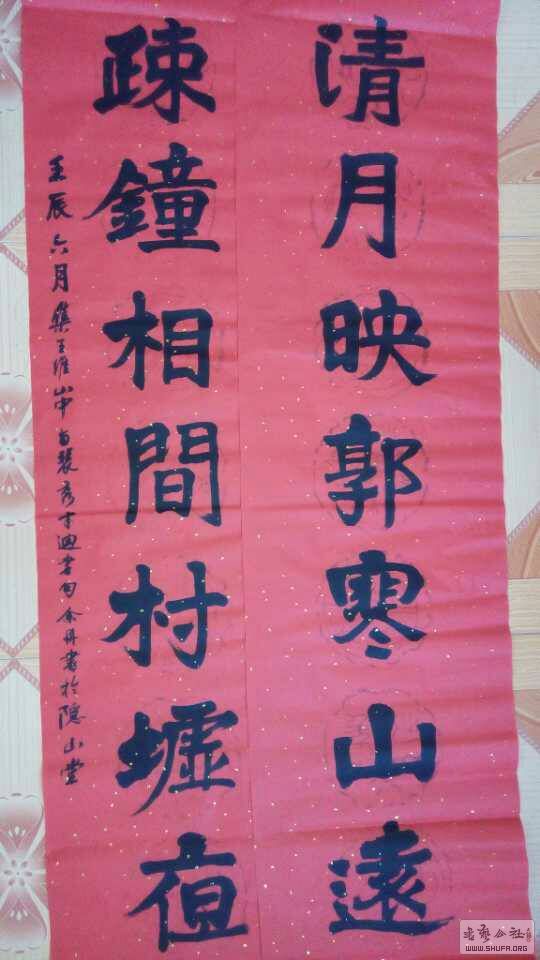 清月映郭寒山遠
疎鐘相間村墟夜
壬辰六月集王維山中與裴秀才迪書句余丹書於隱山堂
書藝公社
WWW.SHUFA.ORG